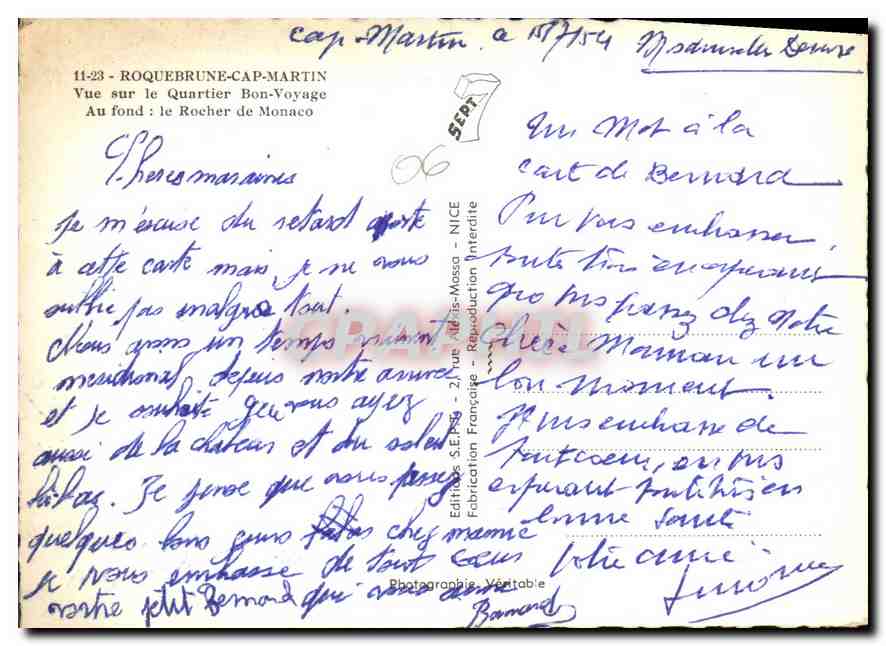 Cap-Martin a 15/7/54
11-23 - ROQUEBRUNE-CAP-MARTIN
Vue sur le Quartier Bon-Voyage
Au fond : le Rocher de Monaco
SEPT
06
Cheres
je m'excuse du retard
à cette carte mais je ne vous
oublie pas malgré tout.
Nous avons un temps vraiment
meridional depuis notre arrivée
et je souhaite que vous ayez
aussi de la chaleur et du soleil
là bas. Je pense que vous passez
quelques bons jours chez mamie
je vous embrasse de tout coeur
votre petit Bernard qui vous aime
Bernard
Editions S.E.P.T. - 2, rue Alexis-Mossa - NICE
Fabrication Française - Reproduction Interdite
Photographie Véritable
Un Mot à la
cart de Bernard
Pour vous embrasser
toutes trois en esperant
que vous passez chez votre
Chère Maman un
bon moment.
Je vous embrasse de
tout coeur, en vous
esperant toutes trois en
bonne santé
Votre amie
CPAPHIL